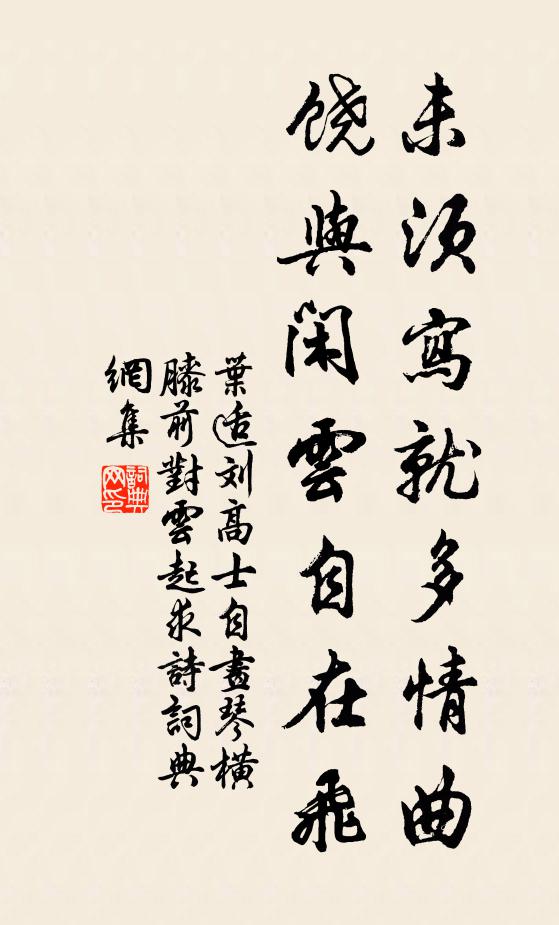 未須寫就多情曲
饒與閑雲自在飛
葉适刘高士自畫琴橫
膝前對雲起求詩詞典
網集
詞典網印